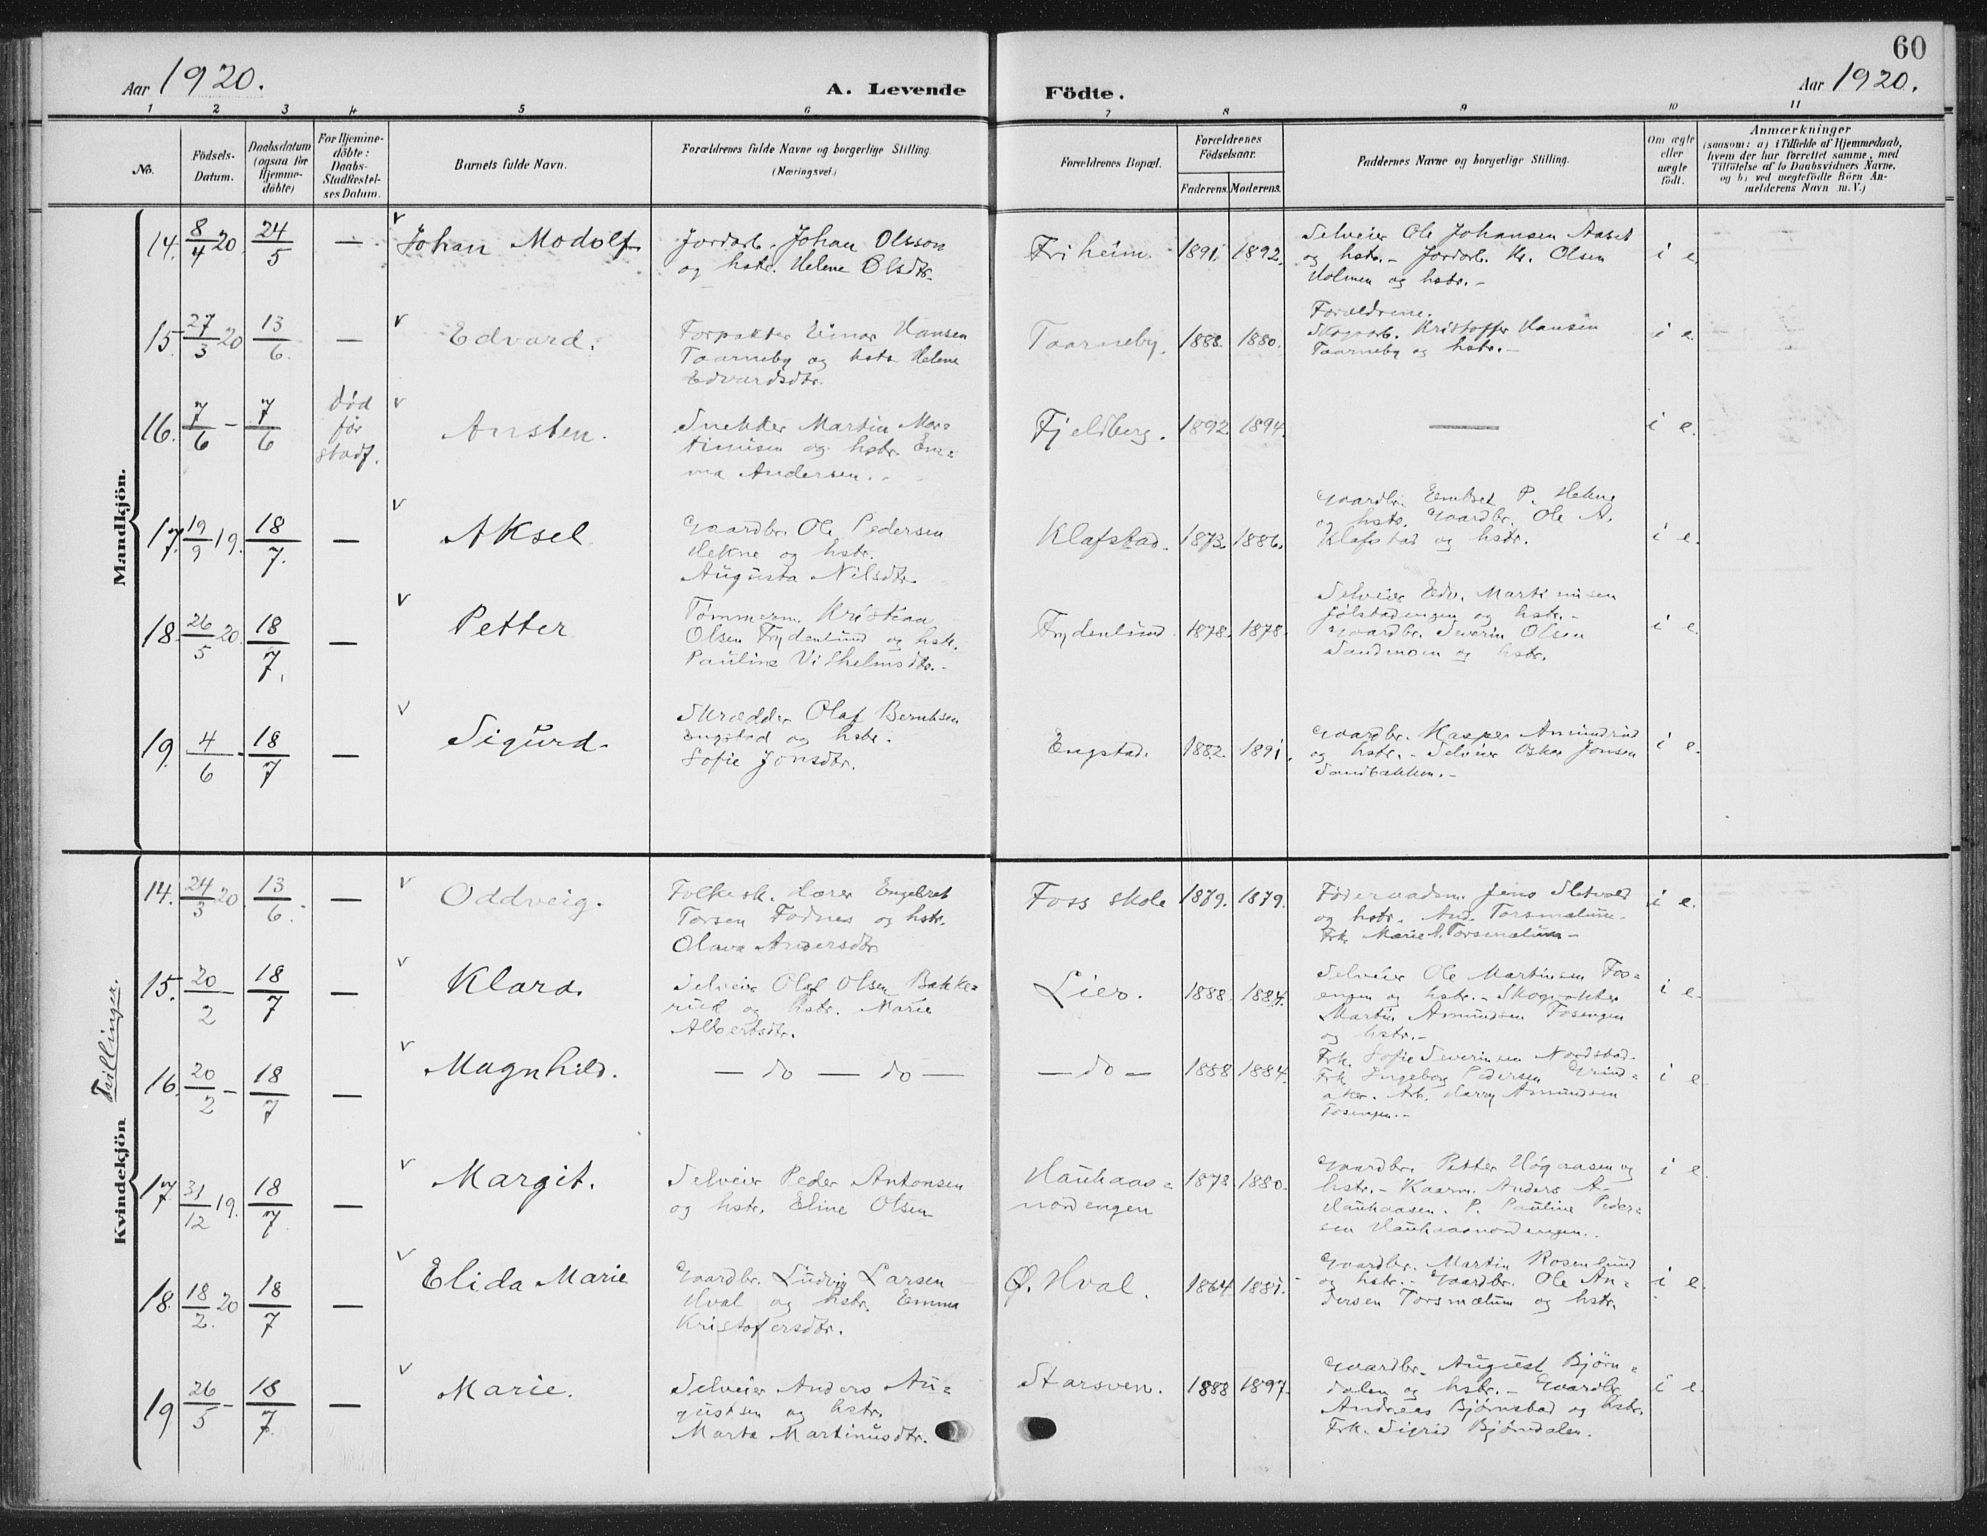 60
Aar 1920.
A. Levende
Födte.
Aar 1920.
1 2 3 4 5 6 7 8 9 10 11
No.
Födsels-
Datum.
Daabsdatum
(ogsaa for
Hjemme-
döbte)
For Hjemme-
döbte:
Daabs-
Stadfæstel-
ses Datum.
Barnets fulde Navn.
Forældrenes fulde Navne og borgerlige Stilling
(Næringsvei.)
Forældrenes Bopæl.
Forældrenes
Födselsaar.
Faderens. Moderens.
Faddernes Navne og borgerlige Stilling.
Om ægte
eller
uægte
födt.
Anmærkninger
(saasom: a) i Tilfælde af Hjemmedaab,
hvem der har forrettet samme, med
Tilföielse af to Daabsvidners Navne,
og b) ved uægtefödte Börn An-
melderens Navn m. V.)
Mandkjön.
14. 8/4 20 24/5 — v Johan Modolf
Jordarb. Johan Olsson
og hstr. Helene Olsdtr.
Friheim. 1891. 1892.
Selveier Ole Johansen Aaset
og hstr. - Jordarb. Kr. Olsen
Holmen og hstr. -
i e.
15. 27/3 20 13/6. — v Edvard.
Forpakter Einar Hansen
Taarneby og hstr. Helene
Edvardsdtr.
Taarneby. 1888. 1880.
Forældrene.
Skogarb. Kristoffer Hansen
Taarneby og hstr. -
i e.
16. 7/6 - 7/6 død
før
stadf.
v Ansten.
Snekker Martin Mar=
tinusen og hstr. Em=
ma Andersen.
Fjeldberg. 1892 1894. — i e.
17. 19/9 19. 18/7. — v Aksel
Gaardbr. Ole Pedersen
Hekne og hstr.
Augusta Nilsdtr.
Klafstad. 1873. 1886.
Gaardbr. Embret P. Hekne
og hstr. Gaardbr. Ole A.
Klafstad og hstr.
i e.
18. 26/5 20. 18/7. — v Petter
Tømmerm. Kristian
Olsen Frydenlund og hstr.
Pauline Vilhelmsdtr. -
Frydenlund. 1878. 1878.
Selveier Edv. Martinusen
Jølstadengen og hstr. -
Gaardbr. Severin Olsen
Sandmoen og hstr.
i e.
19. 4/6 - 18/7 — v Sigurd.
Skrædder Olaf Berntsen
Engstad og hstr.
Sofie Jonsdtr.
Engstad. 1882. 1891.
Gaardbr. Kasper Amundrud
og hstr. - Selveier Oskar Jonsen
Sandbakken. -
i e.
Kvindekjön
Tvillinger.
14. 24/3 20 13/6. — v Oddveig.
Folkesk. Lærer Engebret
Torsen Fodnes og hstr.
Olava Andersdtr.
Foss skole 1879. 1879.
Føderaadsm. Jens Sletvold
og hstr. And. Torsmælum.
Frk. Marie A. Torsmælum -
i e.
15. 20/2 - 18/7 — v Klara.
Selveier Olaf Olsen Bakke=
rud og hstr. Marie
Albertsdtr.
Lier. 1888. 1884.
Selveier Ole Martinsen Fos=
engen og hstr. - Skogvokter
Martin Amundsen Fosengen
og hstr. -
i e.
16. 20/2 - 18/7 — v Magnhild.
— do — do —
— do — 1888 1884.
Frk. Sofie Severinsen Nordstad.
Frk. Ingeborg Pedersen Grind=
aker. Arb. Harry Amundsen
Fosengen. -
i e.
17 31/12 19. 18/7. — v Margit.
Selveier Peder Antonsen
og hstr. Eline Olsen
Hauhaas=
nordengen
1878 1880.
Gaardbr. Petter Høgaasen og
hstr. - Kaarm. Anders A.
Hauhaasen. P. Pauline Peder=
sen Hauhaasnordengen.
i e
18. 18/2. 20 18/7 — v Elida Marie
Gaardbr. Ludvig Larsen
Hval og hstr. Emma
Kristofersdtr.
Ø. Hval. 1864. 1881.
Gaardbr. Martin Rosenlund
og hstr. - Gaardbr. Ole An=
dersen Torsmælum og hstr.
i e.
19 26/5 - 18/7. — v Marie.
Selveier Anders Au=
gustsen og hstr.
Marta Martinusdtr.
Starsven. 1888 1897.
Gaardbr. August Bjørn=
dalen og hstr. - Gaardbr.
Andreas Bjørnstad og hstr.
Frk. Sigrid Bjørndalen.
i e.